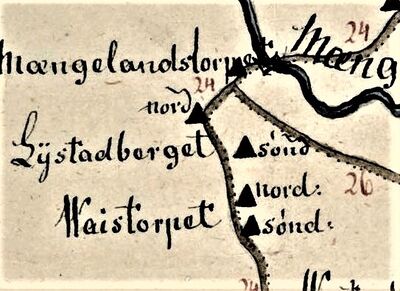 24
Mængelandstorpet Mæng
24
nord
Lÿstadberget sönd
nord: 26
Waistorpet sönd:
24